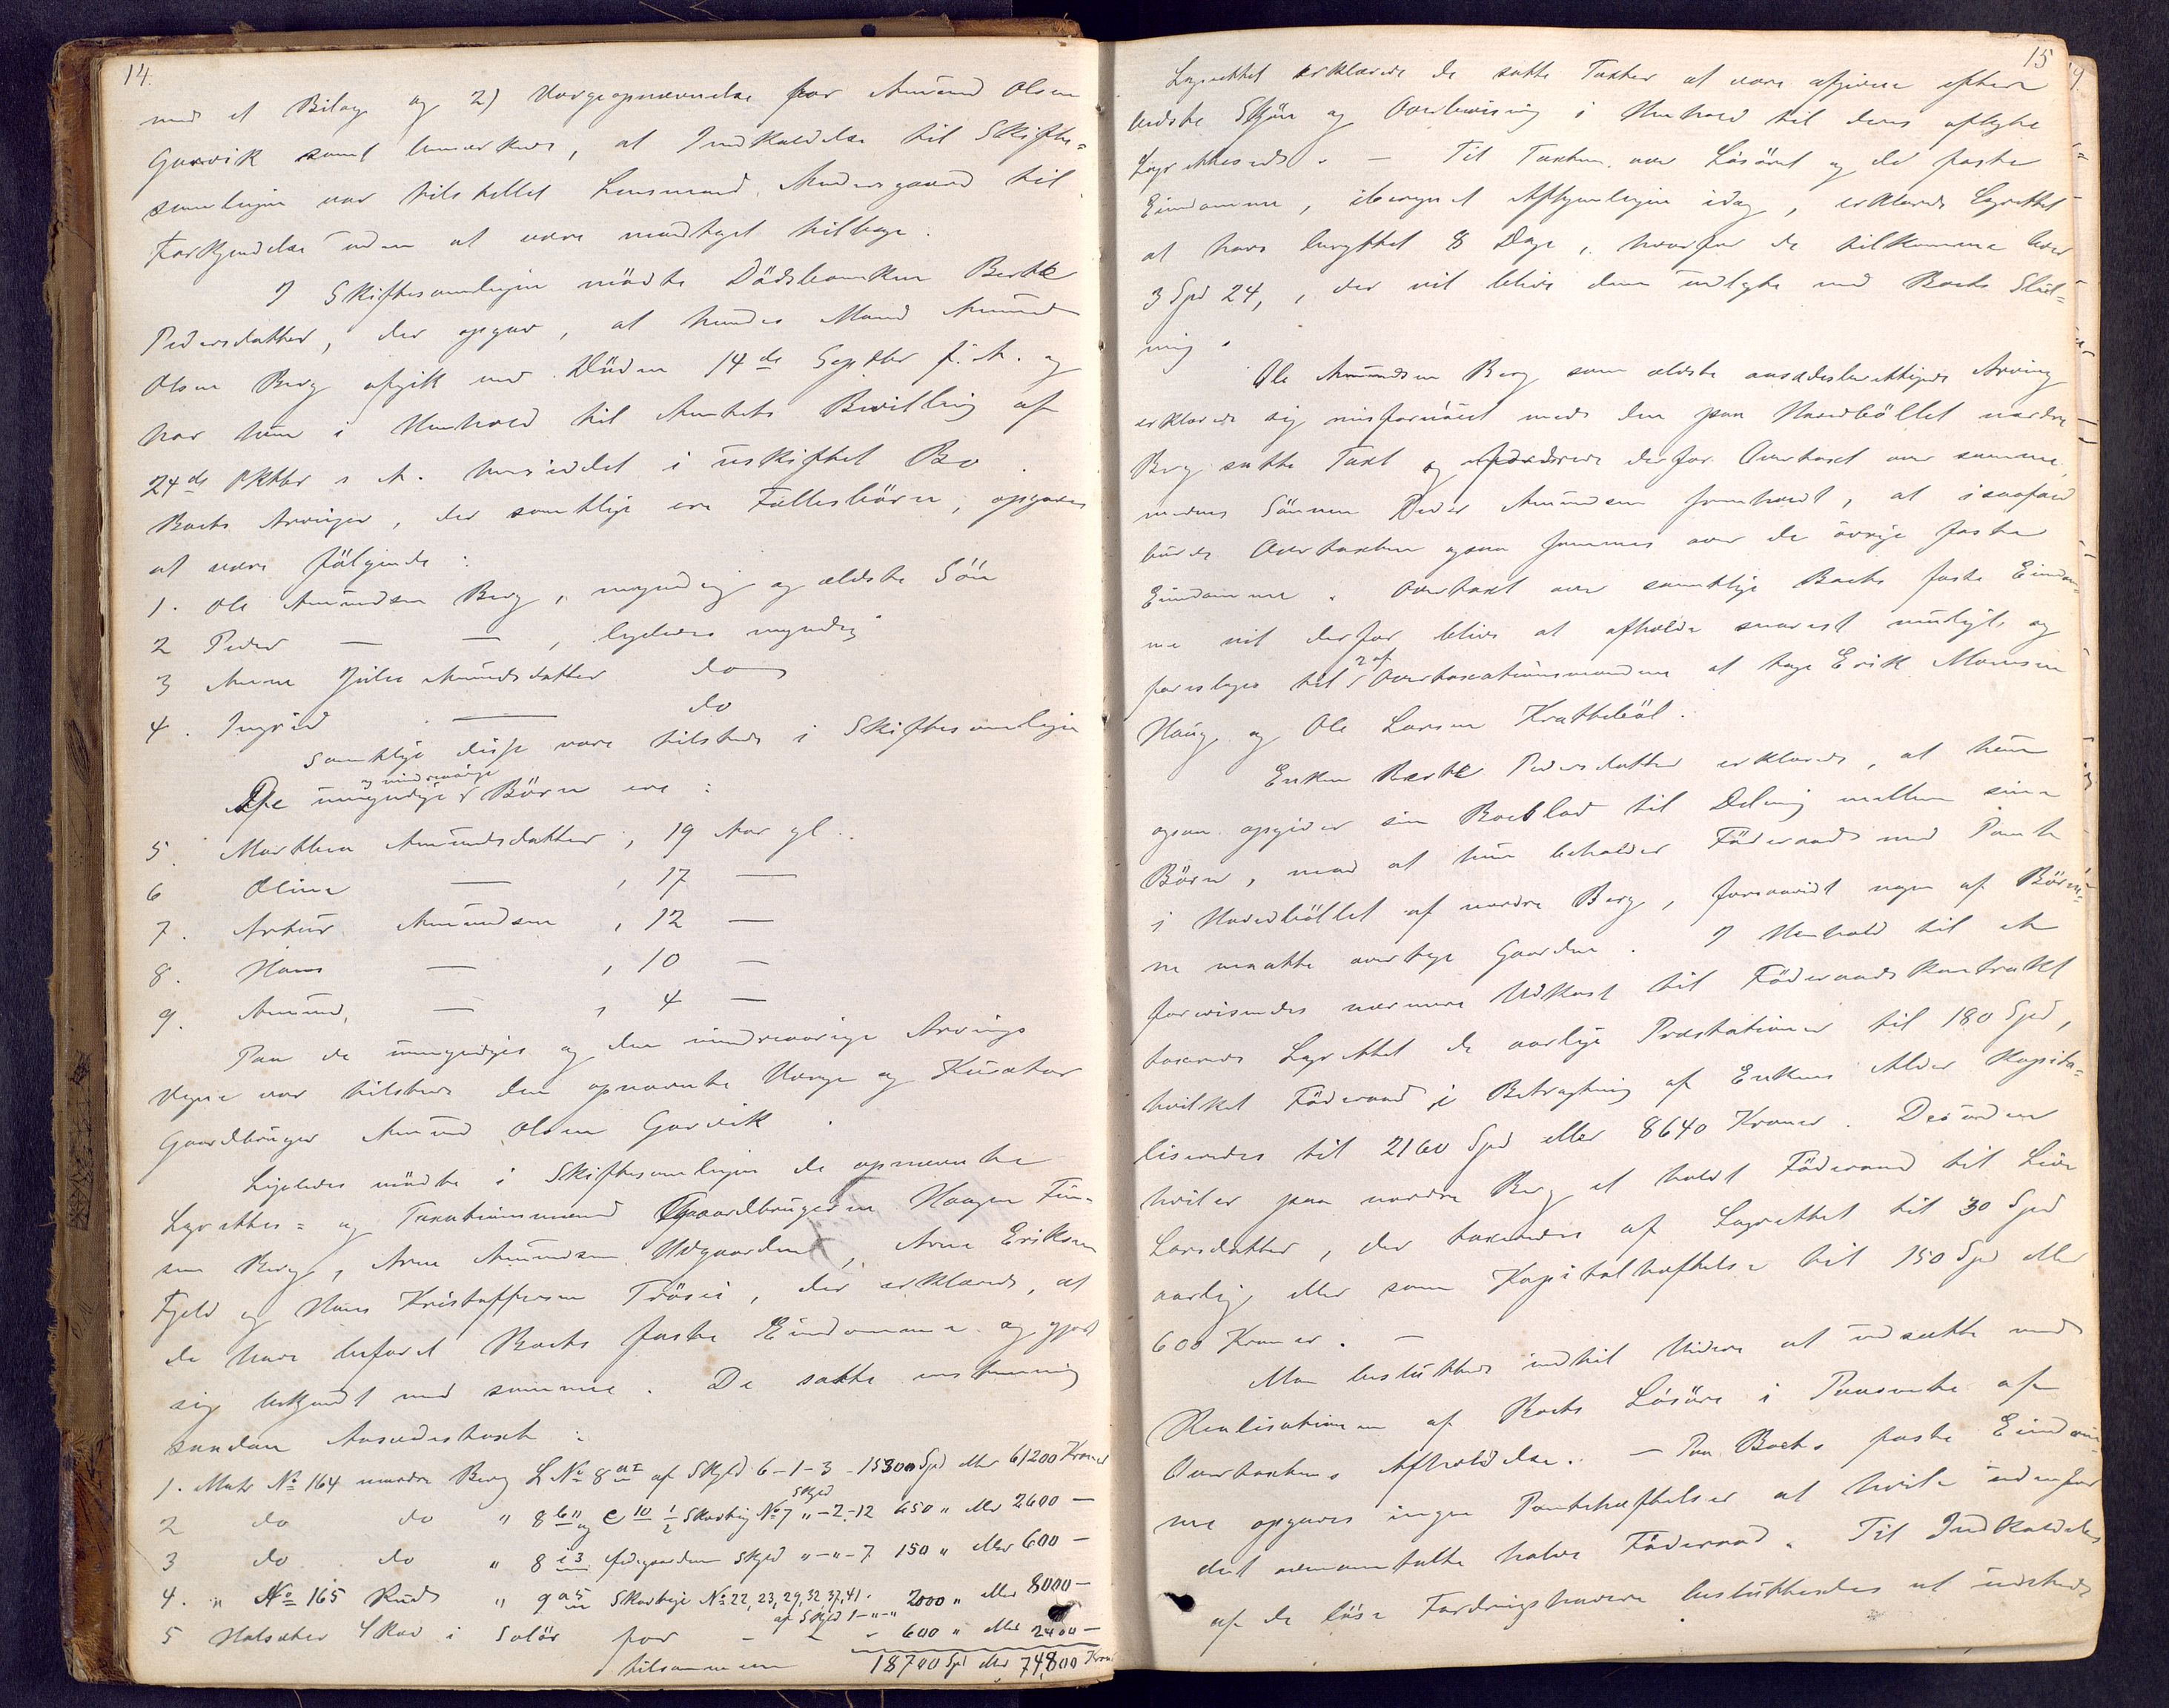 14.
med et Bilag og 2) Vergeopnævnelse for Amund Olsen
Garvik samt bemærkede, at Indkaldelse til Skifte=
samlingen var tilstillet Lensmand Madsgaard til
Forkyndelse uden at være modtaget tilbage.
I Skiftesamlingen mødte Dødsboenken Berthe
Pedersdatter, der opgav, at hendes Mand Amund
Olsen Berg afgik ved Døden 14de Septbr f. A. og
har hun i Henhold til Amtets Bevilling af
24de Oktbr s. A. hensiddet i uskiftet Bo.
Boets Arvinger, der samtlige ere Fællesbørn, opgaves
at være følgende:
1. Ole Amundsen Berg, myndig og ældste Søn
2 Peder — — , ligeledes myndig
3 Anne Julie Amundsdatter do
4. Ingrid — do
Samtlige disse vare tilstede i Skiftesamlingen
og mindreaarige
De umyndige Børn ere:
5. Marthea Amundsdatter, 19 Aar gl.
6 Oline — , 17 —
7. Artur Amundsen , 12 —
8. Hans — , 10 —
9. Amund, — , 4 —
Paa de umyndiges og den mindreaarige Arvings
Vegne var tilstede den opnævnte Verge og Kurator
Gaardbruger Amund Olsen Garvik.
Ligeledes mødte i Skiftesamlingen de opnævnte
Lagrettes= og Taxationsmænd Gaardbrugerne Haagen Fin-
sen Berg, Arne Amundsen Udgaarden, Arne Eriksen
Fjeld og Hans Kristoffersen Trøsei, der erklærede, at
de have befaret Boets faste Eiendomme og gjort
sig bekjendt med samme. De satte enstemmig
saadan Aasædestaxt:
1. Matr No 164 nordre Berg L No 8 a1 af Skyld 6-1-3 - 15300 Spd eller 61200 Kroner
Skyld
2 do do " 8 b11 og e10 1/2 Skovteig No 7 " - 2 - 12 650 " eller 2600 —
3 do do " 8 i3 Udgaarden Skyld " - " - 7 150 " eller 600 —
4. " No 165 Rud " 9 a5 Skovteige No 22, 23, 29, 32, 37, 41. 2000 " eller 8000 —
af Skyld 1 - " - "
5 Halsæter Skov i Solør for - - 600 " eller 2400 —
tilsammen 18700 Spd eller 74,800 Kron
15
Lagrettet erklærede de satte Taxter at være afgivne efter
bedste Skjøn og Overbevisning i Henhold til deres aflagte
Lagrettesed. — Til Taxten over Løsøret og de faste
Eiendomme, iberegnet Afhjemlingen idag, erklærede Lagrettet
at have benyttet 8 Dage, hvorfor de tilkomme hver
3 Spd 24, , der vil blive dem udlagte ved Boets Slut-
ning.
Ole Amundsen Berg som ældste aasædesberettigede Arving
erklærede sig misfornøiet med den paa Hovedbøllet nordre
Berg satte Taxt og fordrede derfor Overtaxt over samme,
medens Sønnen Peder Amundsen fremholdt, at isaafald
burde Overtaxten ogsaa fremmes over de øvrige faste
Eiendomme. Overtaxt over samtlige Boets faste Eiendom-
me vil derfor blive at afholde snarest muligt, og
2 af
foreslages til Overtaxationsmændene at tage Erik Monsen
Haug og Ole Larsen Krattebøl.
Enken Berthe Pedersdatter erklærede, at hun
ogsaa opgiver sin Boeslod til Deling mellem sine
Børn, mod at hun beholder Føderaad med Pant
i Hovedbøllet af nordre Berg, forsaavidt nogen af Børne-
ne maatte overtage Gaarden. I Henhold til et
forevisendes nærmere Udkast til Føderaadskontrakt
taxerede Lagrettet de aarlige Præstationer til 180 Spd,
hvilket Føderaad i Betragtning af Enkens Alder kapita=
liseredes til 2160 Spd eller 8640 Kroner. Desuden
hviler paa nordre Berg et halvt Føderaad til Live
Larsdatter, der taxeredes af Lagrettet til 30 Spd
aarlig eller som Kapitalhæftelse til 150 Spd eller
600 Kroner. —
Man besluttede indtil Videre at udsætte med
Realisationen af Boets Løsøre i Paavente af
Overtaxtens Afholdelse. — Paa Boets faste Eiendom-
me opgaves ingen Pantehæftelser at hvile udenfor
det ovenomtalte halve Føderaad. Til Indkaldelse
af de løse Fordringshavere besluttedes at udstede